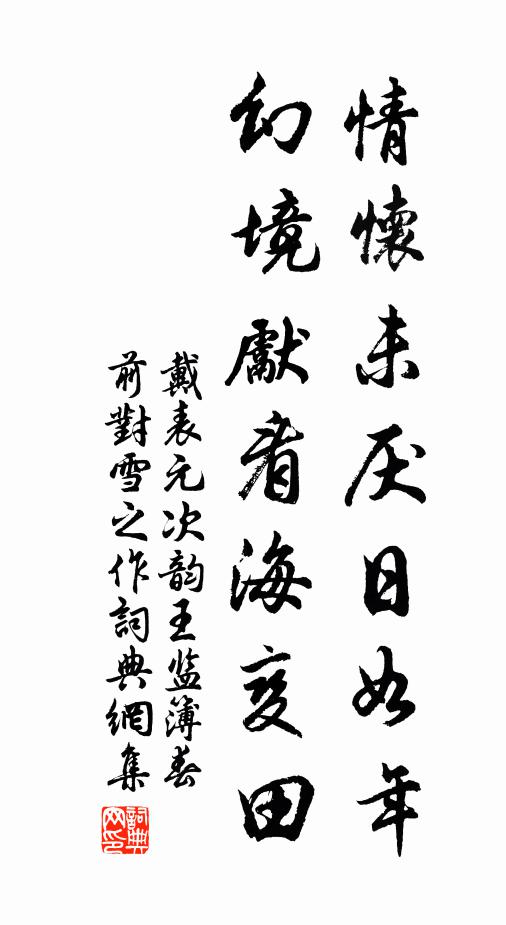 情懷未厌日如年
幻境獻看海变田
戴表元次韵王监簿春
前對雪之作詞典網集
詞典
网印